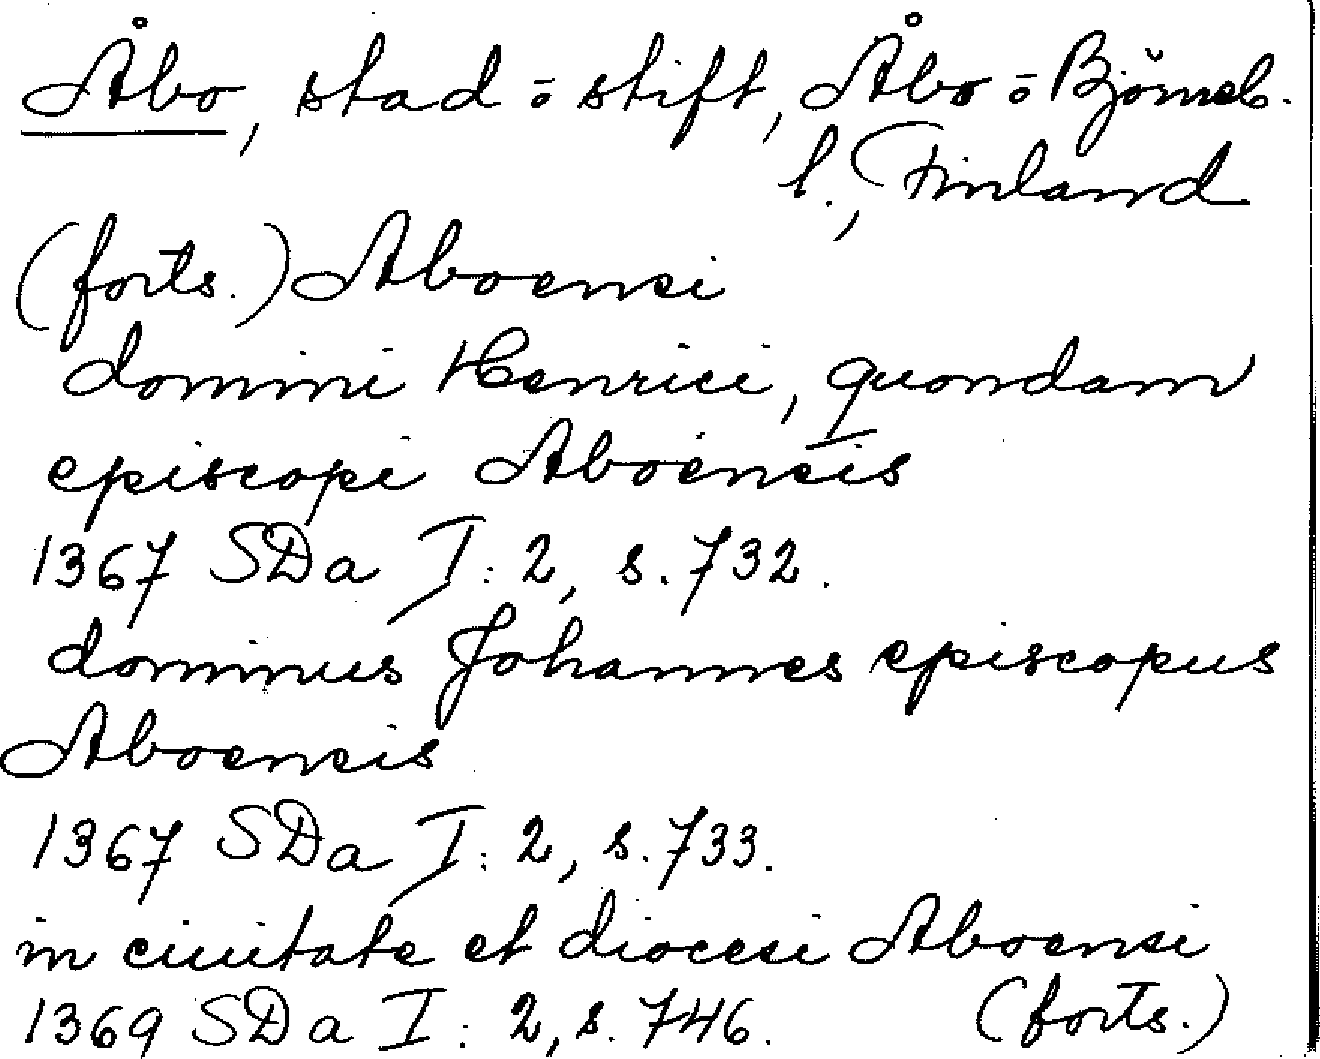 Åbo, stad o. stift, Åbo o. Björneb.
l., Finland
(forts.) Aboensi
domini Henrici, quondam
episcopi Aboensis
1367 SDa I: 2, s. 732.
dominus Johannes episcopus
Aboensis
1367 SDa I: 2, s. 733.
in ciuitate et diocesi Aboensi
1369 SDa I: 2, s. 746. (forts.)